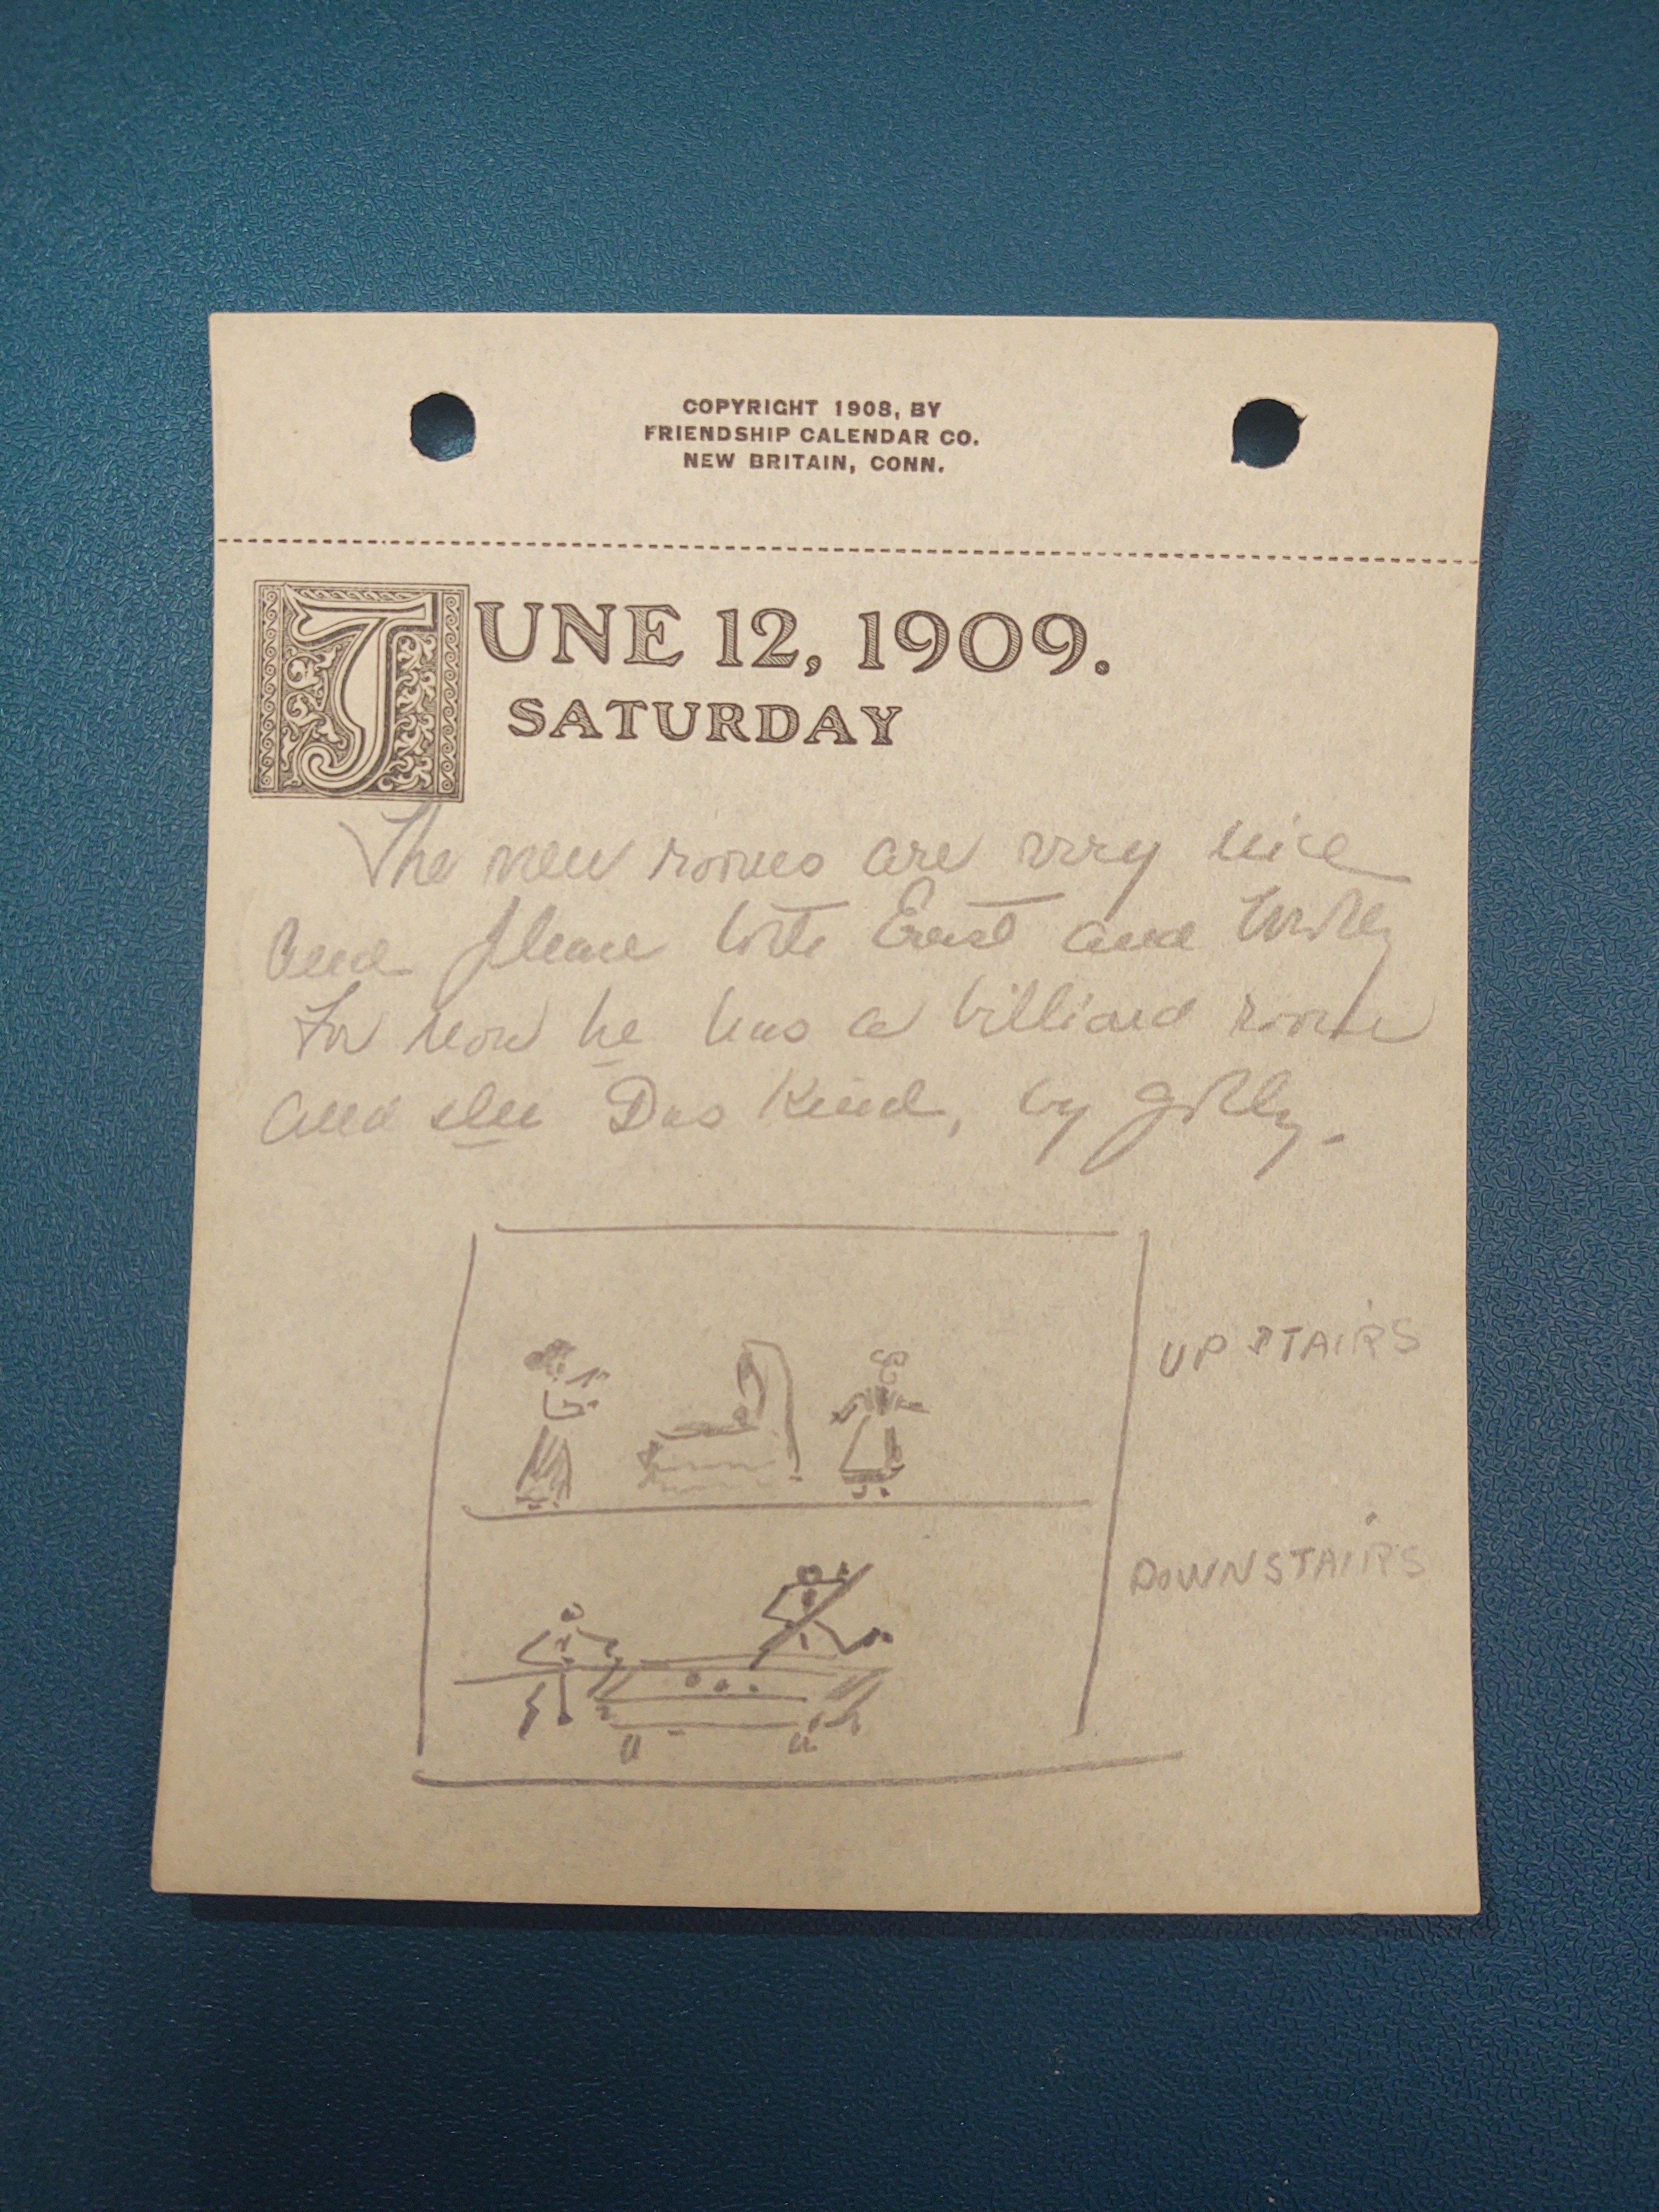 COPYRIGHT 1908, BY
FRIENDSHIP CALENDAR CO.
NEW BRITAIN, CONN.
JUNE 12, 1909.
SATURDAY
The new rooms are very nice
and please both Ernst and
For now he has a billiard room
and she Das Kind, by golly.
UPSTAIRS
DOWNSTAIRS